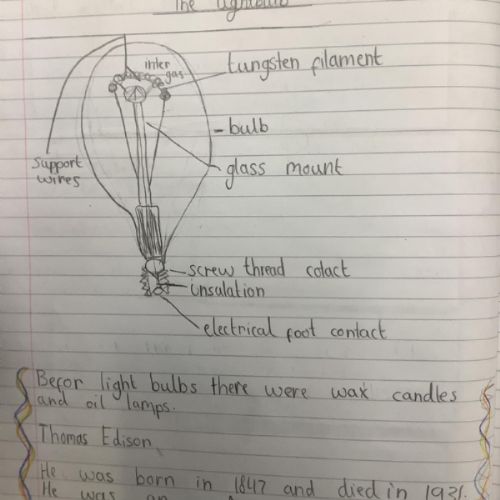 The lightbulb
inter
gas
tungsten filament
bulb
glass mount
support
wires
screw thread colact
unsalation
electrical foot contact
Befor light bulbs there were wax candles
and oil lamps.
Thomas Edison
He was born in 1847 and died in 1931.
He was an